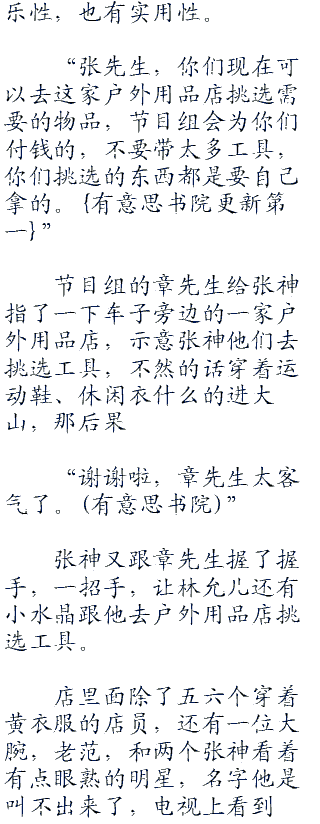 乐性，也有实用性。
“张先生，你们现在可
以去这家户外用品店挑选需
要的物品，节目组会为你们
付钱的，不要带太多工具，
你们挑选的东西都是要自己
拿的。{有意思书院更新第
一}”
节目组的章先生给张神
指了一下车子旁边的一家户
外用品店，示意张神他们去
挑选工具，不然的话穿着运
动鞋、休闲衣什么的进大
山，那后果
“谢谢啦，章先生太客
气了。(有意思书院)”
张神又跟章先生握了握
手，一招手，让林允儿还有
小水晶跟他去户外用品店挑
选工具。
店里面除了五六个穿着
黄衣服的店员，还有一位大
腕，老范，和两个张神看着
有点眼熟的明星，名字他是
叫不出来了，电视上看到